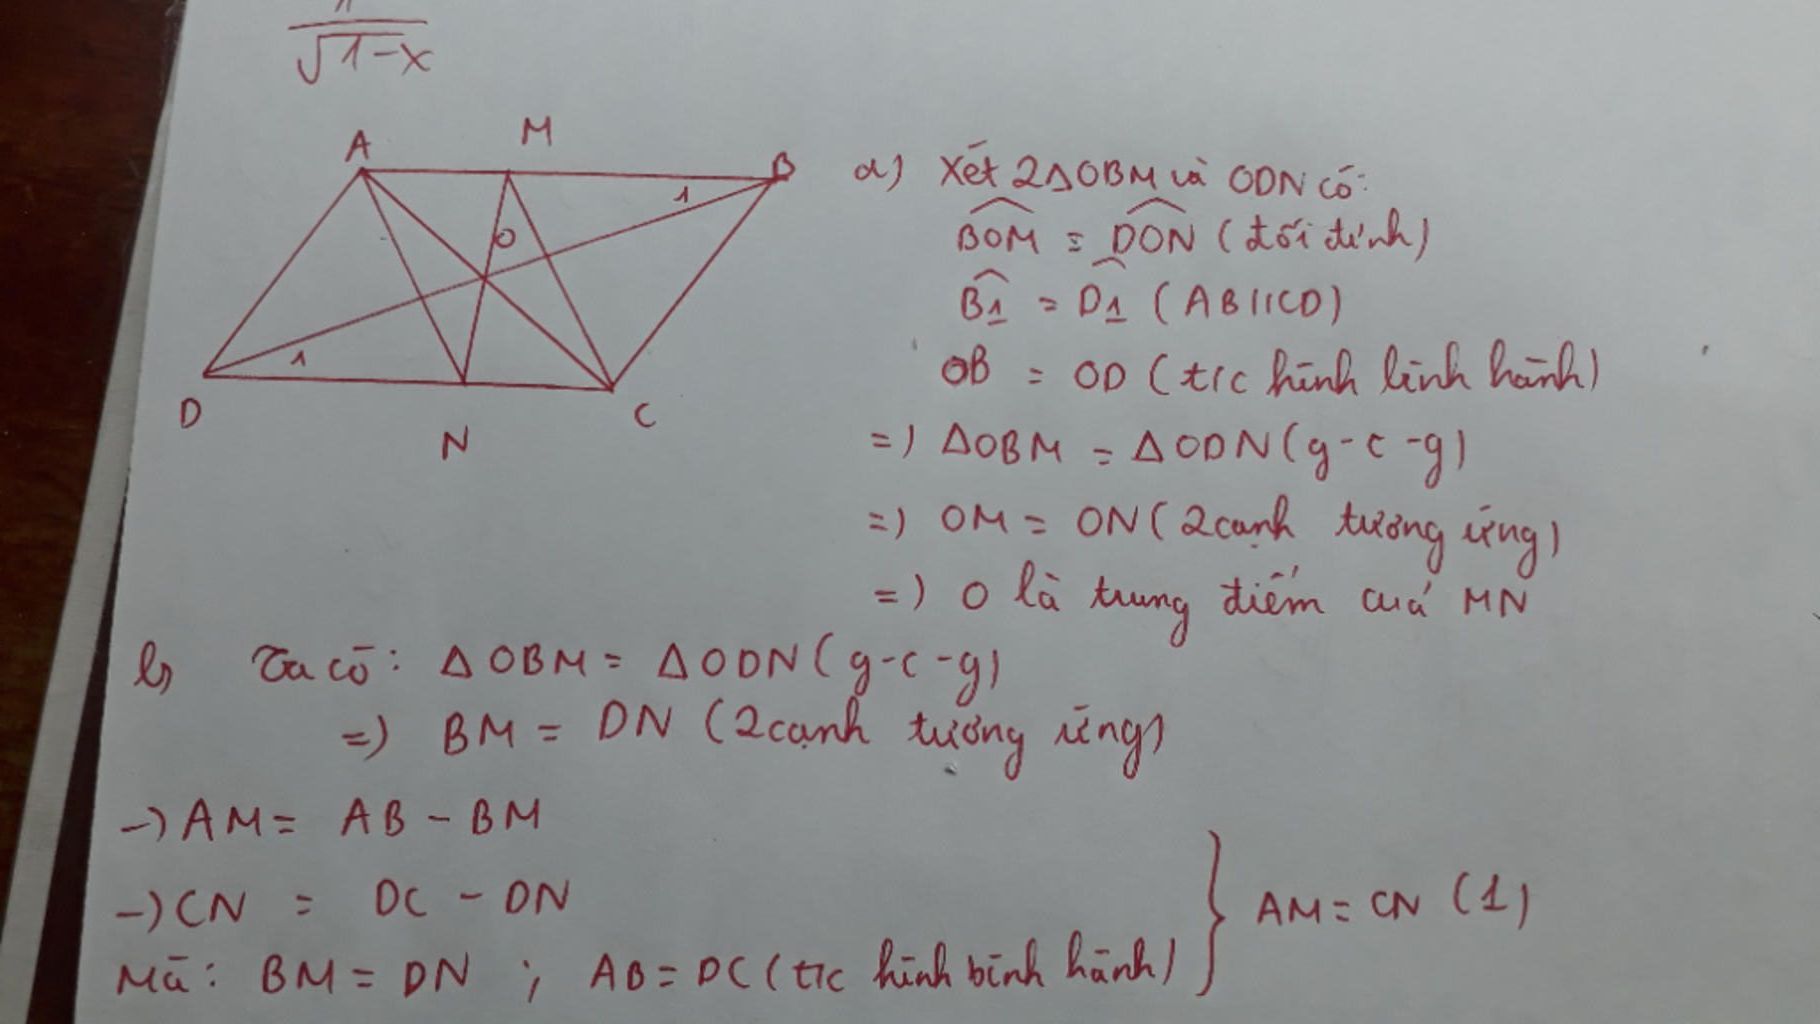 √1-x
A M B
O 1
1
D N C
a) Xét 2ΔOBM và ODN có:
BOM = DON (đối đỉnh)
B1 = D1 (AB//CD)
OB = OD (t/c hình bình hành)
=) ΔOBM = ΔODN (g-c-g)
=) OM = ON (2 cạnh tương ứng)
=) O là trung điểm của MN
b, Ta có: ΔOBM = ΔODN (g-c-g)
=) BM = DN (2 cạnh tương ứng)
-) AM = AB - BM
-) CN = DC - DN
Mà: BM = DN ; AB = DC (t/c hình bình hành)
AM = CN (1)